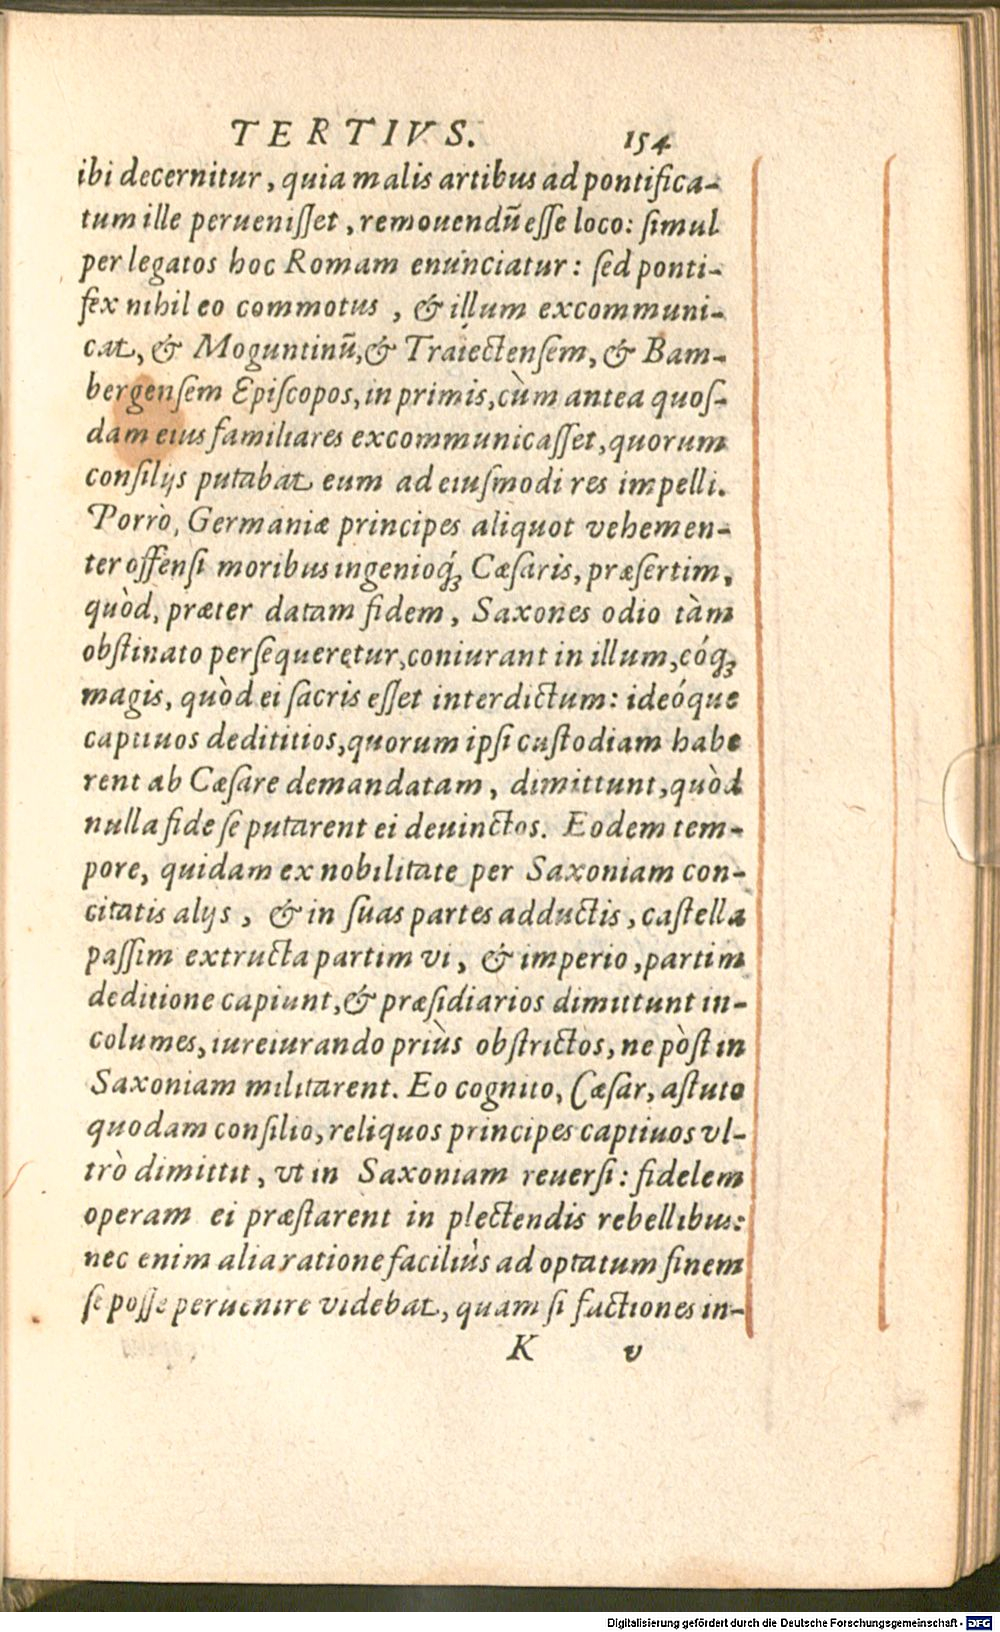 TERTIVS. 154
ibi decernitur, quia malis artibus ad pontifica-
tum ille peruenisset, remouendũ esse loco: simul
per legatos hoc Romam enunciatur: sed ponti-
fex nihil eo commotus, & illum excommuni-
cat, & Moguntinũ, & Traiectensem, & Bam-
bergensem Episcopos, in primis, cùm antea quos-
dam eius familiares excommunicasset, quorum
consilijs putabat eum ad eiusmodi res impelli.
Porrò, Germaniæ principes aliquot vehemen-
ter offensi moribus ingenioq́ꝫ Cæsaris, præsertim,
quòd, præter datam fidem, Saxones odio tàm
obstinato persequeretur, coniurant in illum, eóqꝫ
magis, quòd ei sacris esset interdictum: ideóque
captiuos dedititios, quorum ipsi custodiam habe
rent ab Cæsare demandatam, dimittunt, quòd
nulla fide se putarent ei deuinctos. Eodem tem-
pore, quidam ex nobilitate per Saxoniam con-
citatis alijs, & in suas partes adductis, castella
passim extructa partim vi, & imperio, partim
deditione capiunt, & præsidiarios dimittunt in-
columes, iureiurando priùs obstrictos, ne pòst in
Saxoniam militarent. Eo cognito, Cæsar, astuto
quodam consilio, reliquos principes captiuos vl-
trò dimittit, vt in Saxoniam reuersi: fidelem
operam ei præstarent in plectendis rebellibus:
nec enim alia ratione faciliùs ad optatum finem
se posse peruenire videbat, quam si factiones in-
K v
Digitalisierung gefördert durch die Deutsche Forschungsgemeinschaft - DFG